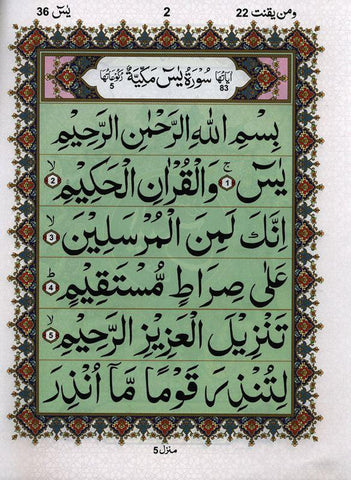 ومن يقنت 22 2 يٰسٓ 36
اٰيَاتُهَا 83 سُوْرَةُ يٰسٓ مَكِّيَّةٌ رُكُوْعَاتُهَا 5
بِسْمِ اللهِ الرَّحْمٰنِ الرَّحِيْمِ
يٰسٓ ۚ ١ وَالْقُرْاٰنِ الْحَكِيْمِ ۙ ٢
اِنَّكَ لَمِنَ الْمُرْسَلِيْنَ ۙ ٣
عَلٰى صِرَاطٍ مُّسْتَقِيْمٍ ؕ ٤
تَنْزِيْلَ الْعَزِيْزِ الرَّحِيْمِ ۙ ٥
لِتُنْذِرَ قَوْمًا مَّاۤ اُنْذِرَ
منزل 5